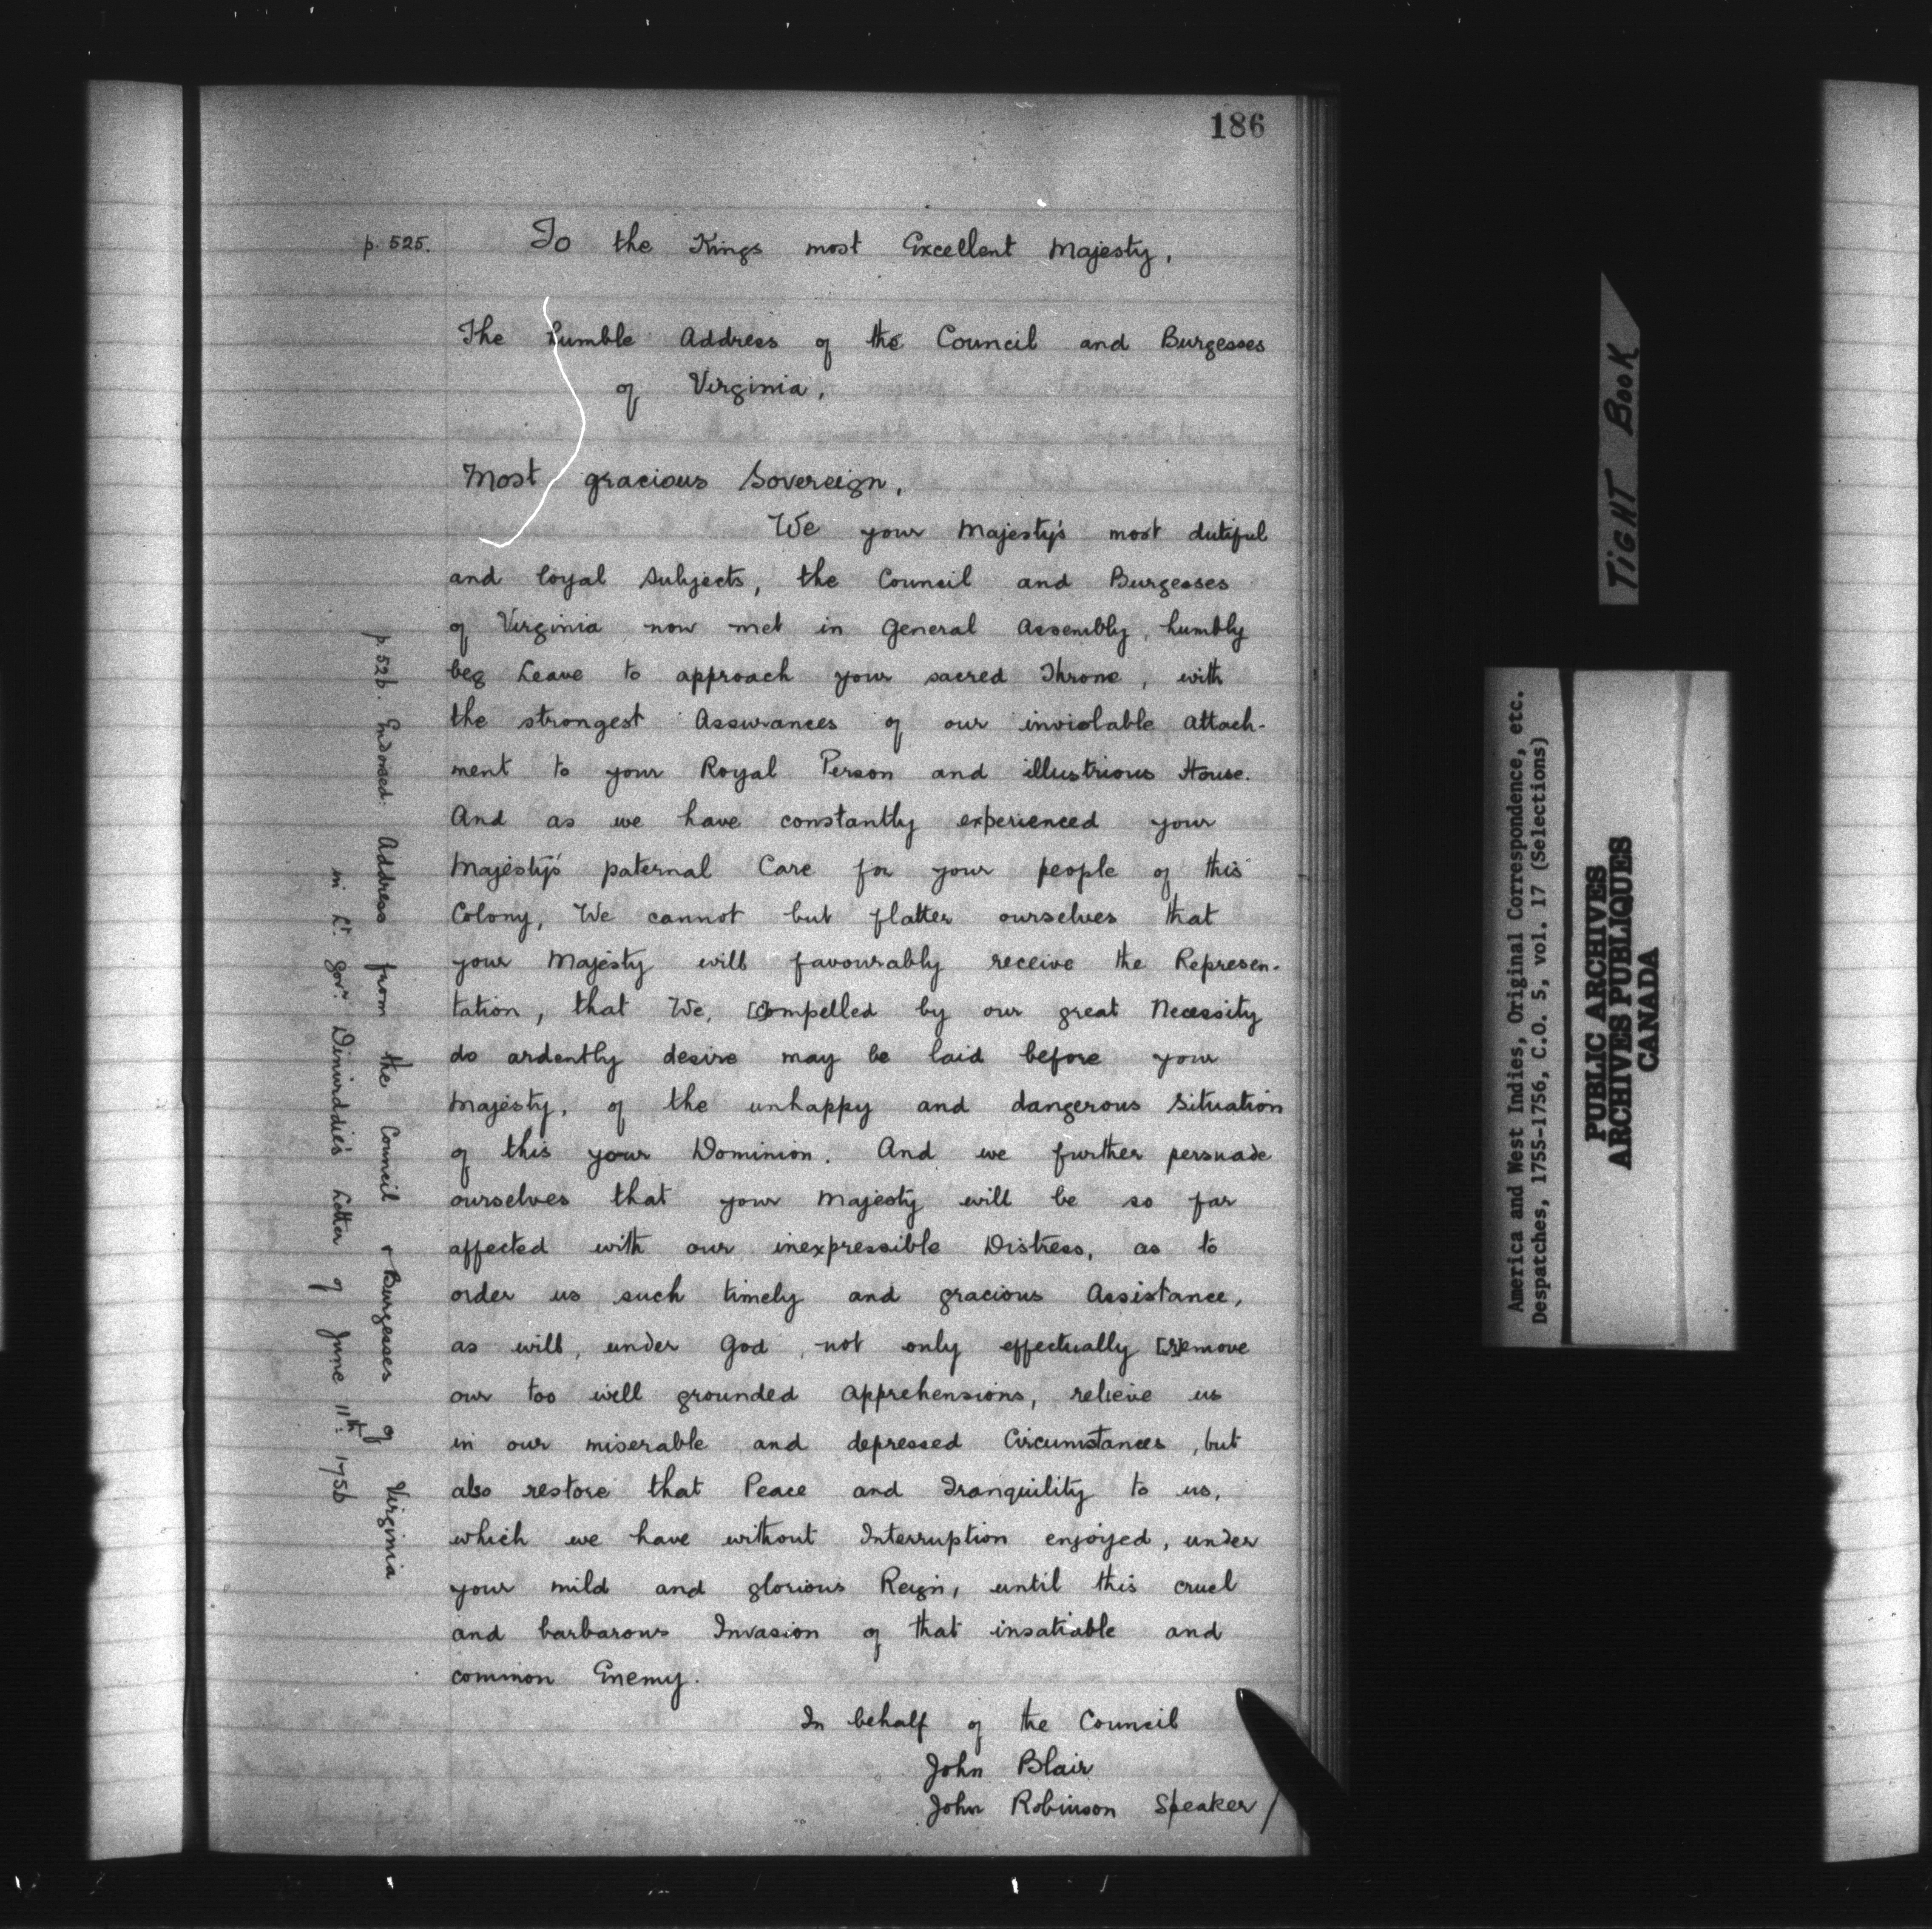 186
p. 525.
To the Kings most Excellent Majesty,
The humble Address of the Council and Burgesses
of Virginia,
Most gracious Sovereign,
We your Majesty's most dutiful
and loyal Subjects, the Council and Burgesses
of Virginia now met in General Assembly, humbly
beg Leave to approach your sacred Throne, with
the strongest Assurances of our inviolable Attach-
ment to your Royal Person and illustrious House.
And as we have constantly experienced your
Majesty's paternal Care for your people of this
Colony, We cannot but flatter ourselves that
your Majesty will favourably receive the Represen-
tation, that We, [C]ompelled by our great Necessity
do ardently desire may be laid before your
Majesty, of the unhappy and dangerous Situation
of this your Dominion. And we further persuade
ourselves that your Majesty will be so far
affected with our inexpressible Distress, as to
order us such timely and gracious Assistance,
as will, under God, not only effectually [R]emove
our too well grounded Apprehensions, relieve us
in our miserable and depressed Circumstances, but
also restore that Peace and Tranquility to us,
which we have without Interruption enjoyed, under
your mild and glorious Reign, until this cruel
and barbarous Invasion of that insatiable and
common Enemy.
In behalf of the Council
John Blair
John Robinson Speaker /
p. 526. Endorsed: Address from the Council & Burgesses of Virginia
in Lt. Govr. Dinwiddie's Letter of June 11th. 1756
TIGHT BOOK
America and West Indies, Original Correspondence, etc.
Despatches, 1755-1756, C.O. 5, vol. 17 (Selections)
PUBLIC ARCHIVES
ARCHIVES PUBLIQUES
CANADA